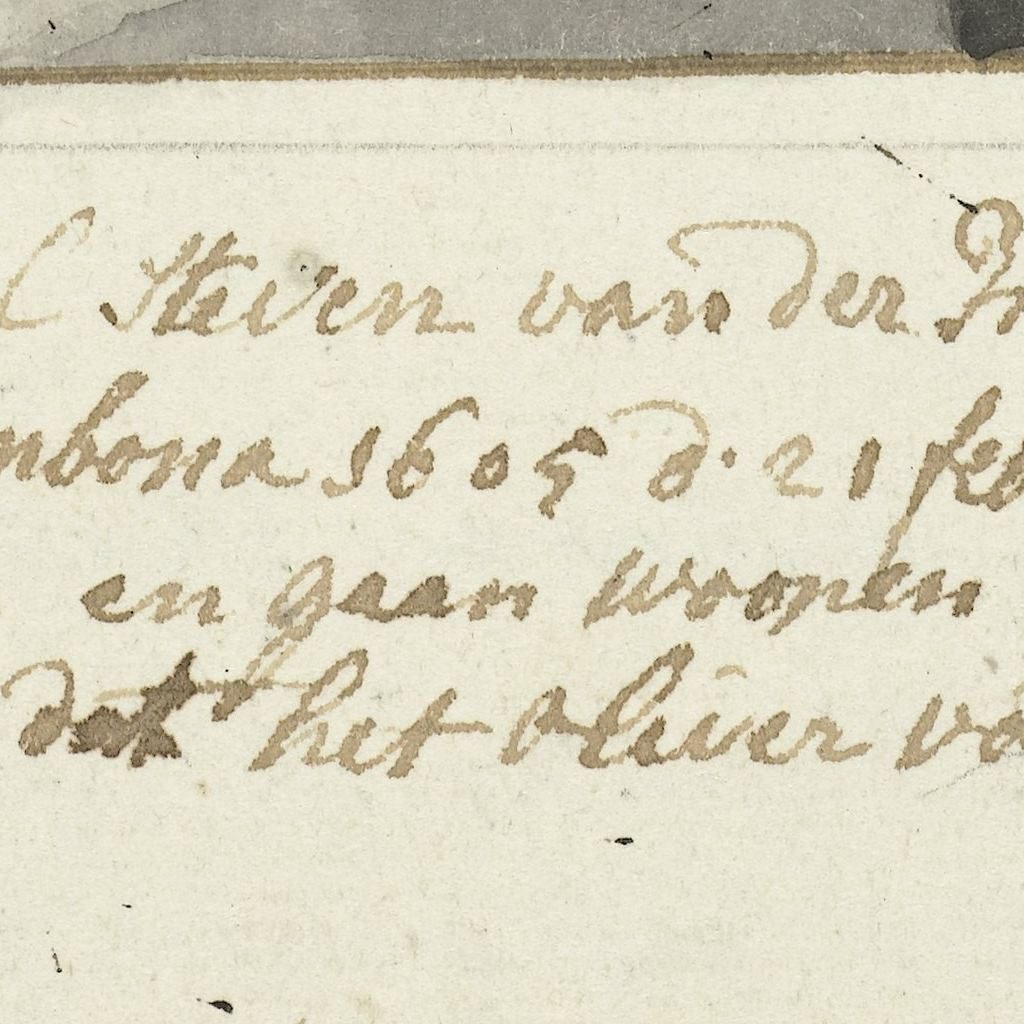 Steven van der
mbona 1605 d. 21 feb
en gaan woonen
dat het Oliver va